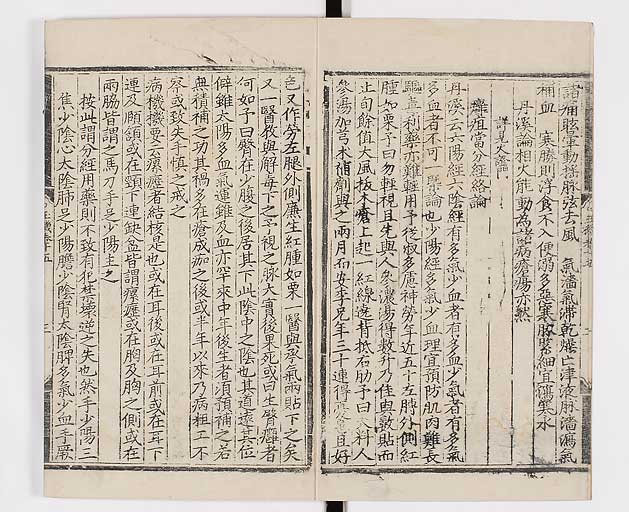 諸痛眩暈動搖脉弦去風　氣濇氣滯乾燥亡津液脉濇瀉氣
補血　寒勝則浮食不入便溺多惡寒脉緊細宜瀉寒水
丹溪論相火能動爲諸病瘡瘍亦然
詳見火論
癰疽當分經絡論
丹溪云六陽經六陰經有多氣少血者有多血少氣者有多氣
多血者不可一槩論也少陽經多氣少血理宜預防肌肉難長
驅毒利藥亦難輕用予從叔多慮神勞年近五十左膊外側紅
腫如栗予曰勿輕視且先與人參濃湯得數斤乃佳與數貼而
止旬餘值大風拔木瘡上起一紅線遶背抵右肋予曰必大料人
參湯加芎朮補劑與之兩月而安李兄年三十連得憂且好
色又作勞左腿外側廉生紅腫如栗一醫與承氣兩貼下之矣
又一醫教與解毒下之予視之脉大實後果死或曰生臂癰者
何如予曰臂在少腹之後居其下此陰中之陰也其道遠其位
僻雖太陽多血氣運難及血亦罕來中年後生者須預補之若
無積補之功其禍多在瘡成痂之後或半年以來乃病粗工不
察或致失手慎之戒之
病機機要云瘰癧者結核是也或在耳後或在耳前或在耳下
連及頤頷或在頸下連缺盆皆謂瘰癧或在胸及胸之側或在
兩脇皆謂之馬刀手足少陽主之
按此謂分經用藥則不致有犯禁壞逆之失也然手少陽三
焦少陰心太陰肺足少陽膽少陰腎太陰脾多氣少血手厥